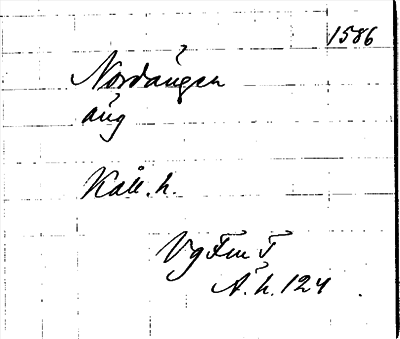 1586
Nordängen
äng
Kåll. h.
VgFmT
Å. h. 124